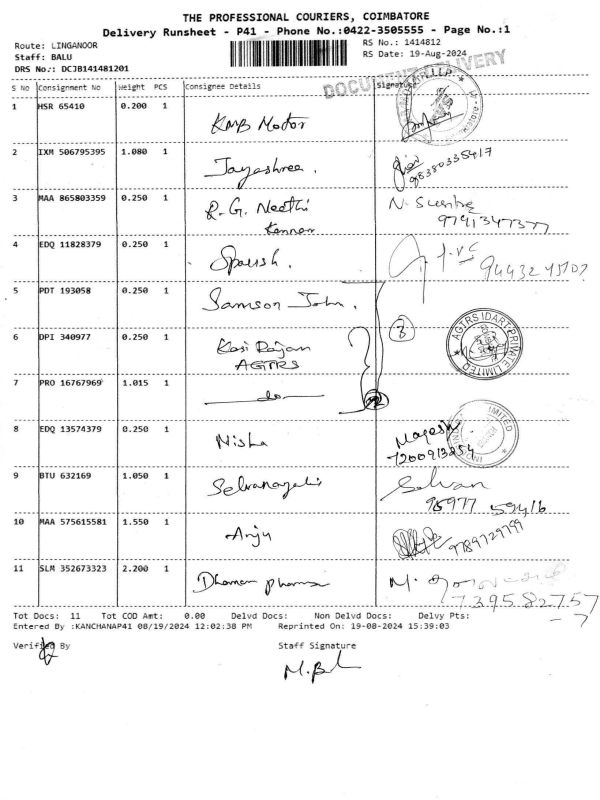 THE PROFESSIONAL COURIERS, COIMBATORE
Delivery Runsheet - P41 - Phone No.:0422-3505555 - Page No.:1
Route: LINGANOOR
Staff: BALU
DRS No.: DCJB141481201
RS No.: 1414812
RS Date: 19-Aug-2024
DOCUMENT DELIVERY
S No Consignment No Weight PCS Consignee Details Signature
1 HSR 65410 0.200 1 KMB Motor
2 IXM 506795395 1.080 1 Jayashree.
3 MAA 865803359 0.250 1 R.G. Neethi Kannan N. 9791347377
4 EDQ 11828379 0.250 1
5 PDT 193058 0.250 1 Samson John.
6 DPI 340977 0.250 1 Kasi Rajan AGTRS 3
AGTRS IDART PRIVATE LIMITED
7 PRO 16767969 1.015 1 do
8 EDQ 13574379 0.250 1 Nisha Magesh 7200913254
9 BTU 632169 1.050 1 Selvanayaki Selvan
10 MAA 575615581 1.550 1 Anju 9789729799
11 SLM 352673323 2.200 1 M.
Tot Docs: 11 Tot COD Amt: 0.00 Delvd Docs: Non Delvd Docs: Delvy Pts:
Entered By :KANCHANAP41 08/19/2024 12:02:38 PM Reprinted On: 19-08-2024 15:39:03
Verified By Staff Signature